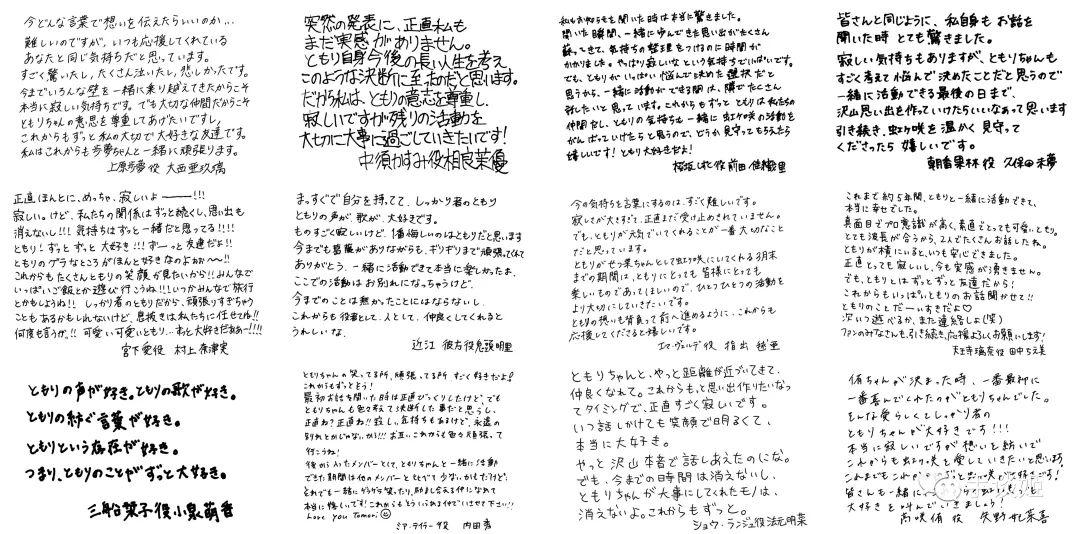 今どんな言葉で想いを伝えたらいいのか…
難しいのですが、いつも応援してくれている
あなたと同じ気持ちだと思っています。
すごく驚いたし、たくさん泣いたし、悲しかったです。
今までいろんな壁を一緒に乗り越えてきたからこそ
本当に寂しい気持ちです。でも大切な仲間だからこそ
ともりちゃんの意思を尊重してあげたいですし、
これからもずっと私の大切で大好きな友達です。
私はこれからも歩夢ちゃんと一緒に頑張ります。
上原歩夢役 大西亜玖璃
突然の発表に、正直私も
まだ実感がありません。
ともり自身今後の長い人生を考え
このような決断に至ったのだと思います。
だから私は、ともりの意志を尊重し、
寂しいですが残りの活動を
大切に大事に過ごしていきたいです!
中須かすみ役 相良茉優
私もお知らせを聞いた時は本当に驚きました。
聞いた瞬間、一緒に歩んできた思い出がたくさん
蘇ってきて、気持ちの整理をつけるのに時間が
かかりました。やっぱり寂しいなという気持ちでいっぱいです。
でも、ともりがいっぱい悩んで決めた選択だと
思うから、一緒に活動ができる間は、隣でたくさん
話したいと思っています。これからもずっとともりは私たちの
仲間だし、ともりの気持ちも一緒に虹ヶ咲の活動を
がんばっていけたらと思うので、どうか見守ってもらえたら
嬉しいです!ともり大好きだよ!
桜坂しずく役 前田佳織里
皆さんと同じように、私自身もお話を
聞いた時とても驚きました。
寂しい気持ちもありますが、ともりちゃんも
すごく考えて悩んで決めたことだと思うので
一緒に活動できる最後の日まで、
沢山思い出を作っていけたらいいなぁって思います
引き続き、虹ヶ咲を温かく見守って
くださったら嬉しいです。
朝香果林役 久保田未夢
正直ほんとに、めっちゃ、寂しいよーーー!!!
寂しい。けど、私たちの関係はずっと続くし、思い出も
消えないし!!! 気持ちはずっと一緒だと思ってる!!!!
ともり!ずっとずっと大好き!!! ずーっと友達だよ!!
ともりのゲラなところがほんと好きなのよぉぉ〜〜!!
これからもたくさんともりの笑顔が見たいから!!みんなで
いっぱいご飯とか遊び行こうね!!!いつかみんなで旅行
とかもしようね!! しっかり者のともりだから、頑張りすぎちゃう
こともあるかもしれないけど、息抜きは私たちに任せてね!!
何度も言うが。!! 可愛い可愛いともり…ずっと大好きだぁぁー!!!!
宮下愛役 村上奈津実
まっすぐで自分を持ってて、しっかり者のともり
ともりの声が、歌が、大好きです。
ものすごく寂しいけど、1番悔しいのはともりだと思います
今までも葛藤がありながらも、ギリギリまで頑張ってくれて
ありがとう、一緒に活動できて本当に楽しかったよ、
ここでの活動はお別れになっちゃうけど、
今までのことは無かったことにはならないし、
これからも役者として、人として、仲良くしてくれると
うれしいな、
近江彼方役 鬼頭明里
今の気持ちを言葉にするのは、すごく難しいです。
寂しさが大きすぎて、正直まだ受け止めきれていません。
でも、ともりが元気でいてくれることが一番大切なこと
だと思っています。
ともりがせつ菜ちゃんとして虹ヶ咲にいてくれる3月末
までの期間は、ともりにとっても皆様にとっても
楽しいものであってほしいので、ひとつひとつの活動を
より大切にしていきたいです。
ともりの想いも背負って前へ進めるように、これからも
応援してくださると嬉しいです。
エマ・ヴェルデ役 指出毬亜
これまで約5年間、ともりと一緒に活動できて、
本当に幸せでした。
真面目でプロ意識が高く、素直でとっても可愛いともり。
とても波長が合うから、2人でたくさんお話したね。
ともりが横にいると、いつも安心できました。
正直とっても寂しいし、今も実感が湧きません。
でも、ともりとはずっとずっと友達だから!
これからもいっぱい、ともりのお話聞かせて!!
ともりのことだーいすきだよ♡
次いつ遊べるか、また連絡しよ(笑)
ファンのみなさんも、引き続き、応援よろしくお願いします!
天王寺璃奈役 田中ちえ美
ともりの声が好き。ともりの歌が好き。
ともりの紡ぐ言葉が好き。
ともりという存在が好き。
つまり、ともりのことがずっと大好き。
三船栞子役 小泉萌香
ともりちゃんの笑ってる所、頑張ってる所すごく好きだよ!
これからもずっとそう!
最初お話を聞いた時は正直びっくりしたけど、でも
ともりちゃんも色々考えて決断した事だと思うし、
正直ね?正直ね!!寂しい気持ちもあるけど、永遠の
別れとかじゃないから!!! お互いこれからも色々頑張って
行こうね!
後から入ったメンバーとして、ともりちゃんと一緒に活動
できた期間は他のメンバーとくらべて少ないかもだけど、
それでも一緒にゲラゲラ笑ったり、励まし合える仲になれて
本当に嬉しいです!これからもどうぞ
Love you Tomori
ミア・テイラー役 内田秀
ともりちゃんと、やっと距離が近づいてきて、
仲良くなれて。これからもっと思い出作りたいなって
タイミングで、正直すごく寂しいです。
いつ話しかけても笑顔で明るくて、
本当に大好き。
やっと沢山本音で話しあえたのになぁ。
でも、今までの時間は消えないし、
ともりちゃんが大事にしてくれたモノは、
消えないよ。これからもずっと。
ショウ・ランジュ役 法元明菜
侑ちゃんが決まった時、一番最初に
一番喜んでくれたのがともりちゃんでした。
そんな愛らしくてしっかり者の
ともりちゃんが大好きです!!!
本当に寂しいですが想いを紡いで
これからも虹ヶ咲を愛していきたいと思います
これまでもこれからもずっと
皆さんも一緒に
大好きを叫んでいきましょう!
高咲侑役 矢野妃菜喜